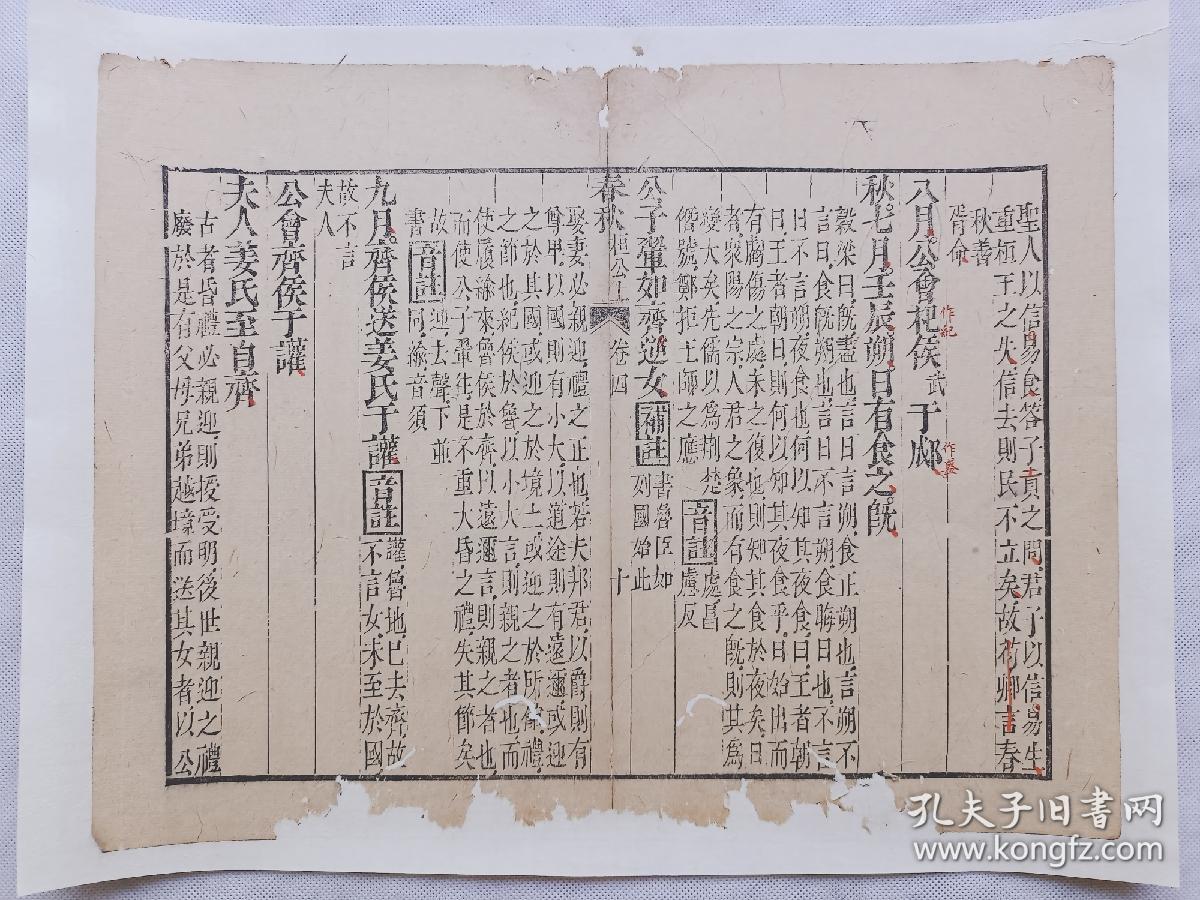 聖人以信易食答子貢之問君子以信易生
重桓王之失信去則民不立矣故荀卿言春
秋善
胥命
八月公會杞侯武于郕
作紀
作盛
秋七月壬辰朔日有食之既
穀梁曰旣盡也言日言朔食正朔也言朔不
言日食旣朔也言日不言朔食晦日也不言
日不言朔夜食也何以知其夜食曰王者朝
日王者朝日則何以知其夜食乎曰始出而
有虧傷之處未之復也則知其食於夜矣日
者衆陽之宗人君之象而有食之旣則其為
變大矣先儒以爲荆楚
僭號鄭拒王師之應
音註
處昌
慮反
公子翬如齊逆女
補註
書魯臣如
列國始此
春秋 桓公上 卷四 十
娶妻必親迎禮之正也若夫邦君以爵則有
尊卑以國則有小大以道途則有遠邇或迎
之於其國或迎之於境上或迎之於所館禮
之節也紀侯於魯以小大言則親之者也而
使履緰來魯侯於齊以遠邇言則親之者也
而使公子翬往是不重大昏之禮失其節矣
故
書
音註
迎去聲下並
同緰音須
九月齊侯送姜氏于讙
音註
讙魯地已去齊故
不言女未至於國
故不言
夫人
公會齊侯于讙
夫人姜氏至自齊
古者昏禮必親迎則授受明後世親迎之禮
廢於是有父母兄弟越境而送其女者以公
孔夫子旧书网
www.kongfz.com